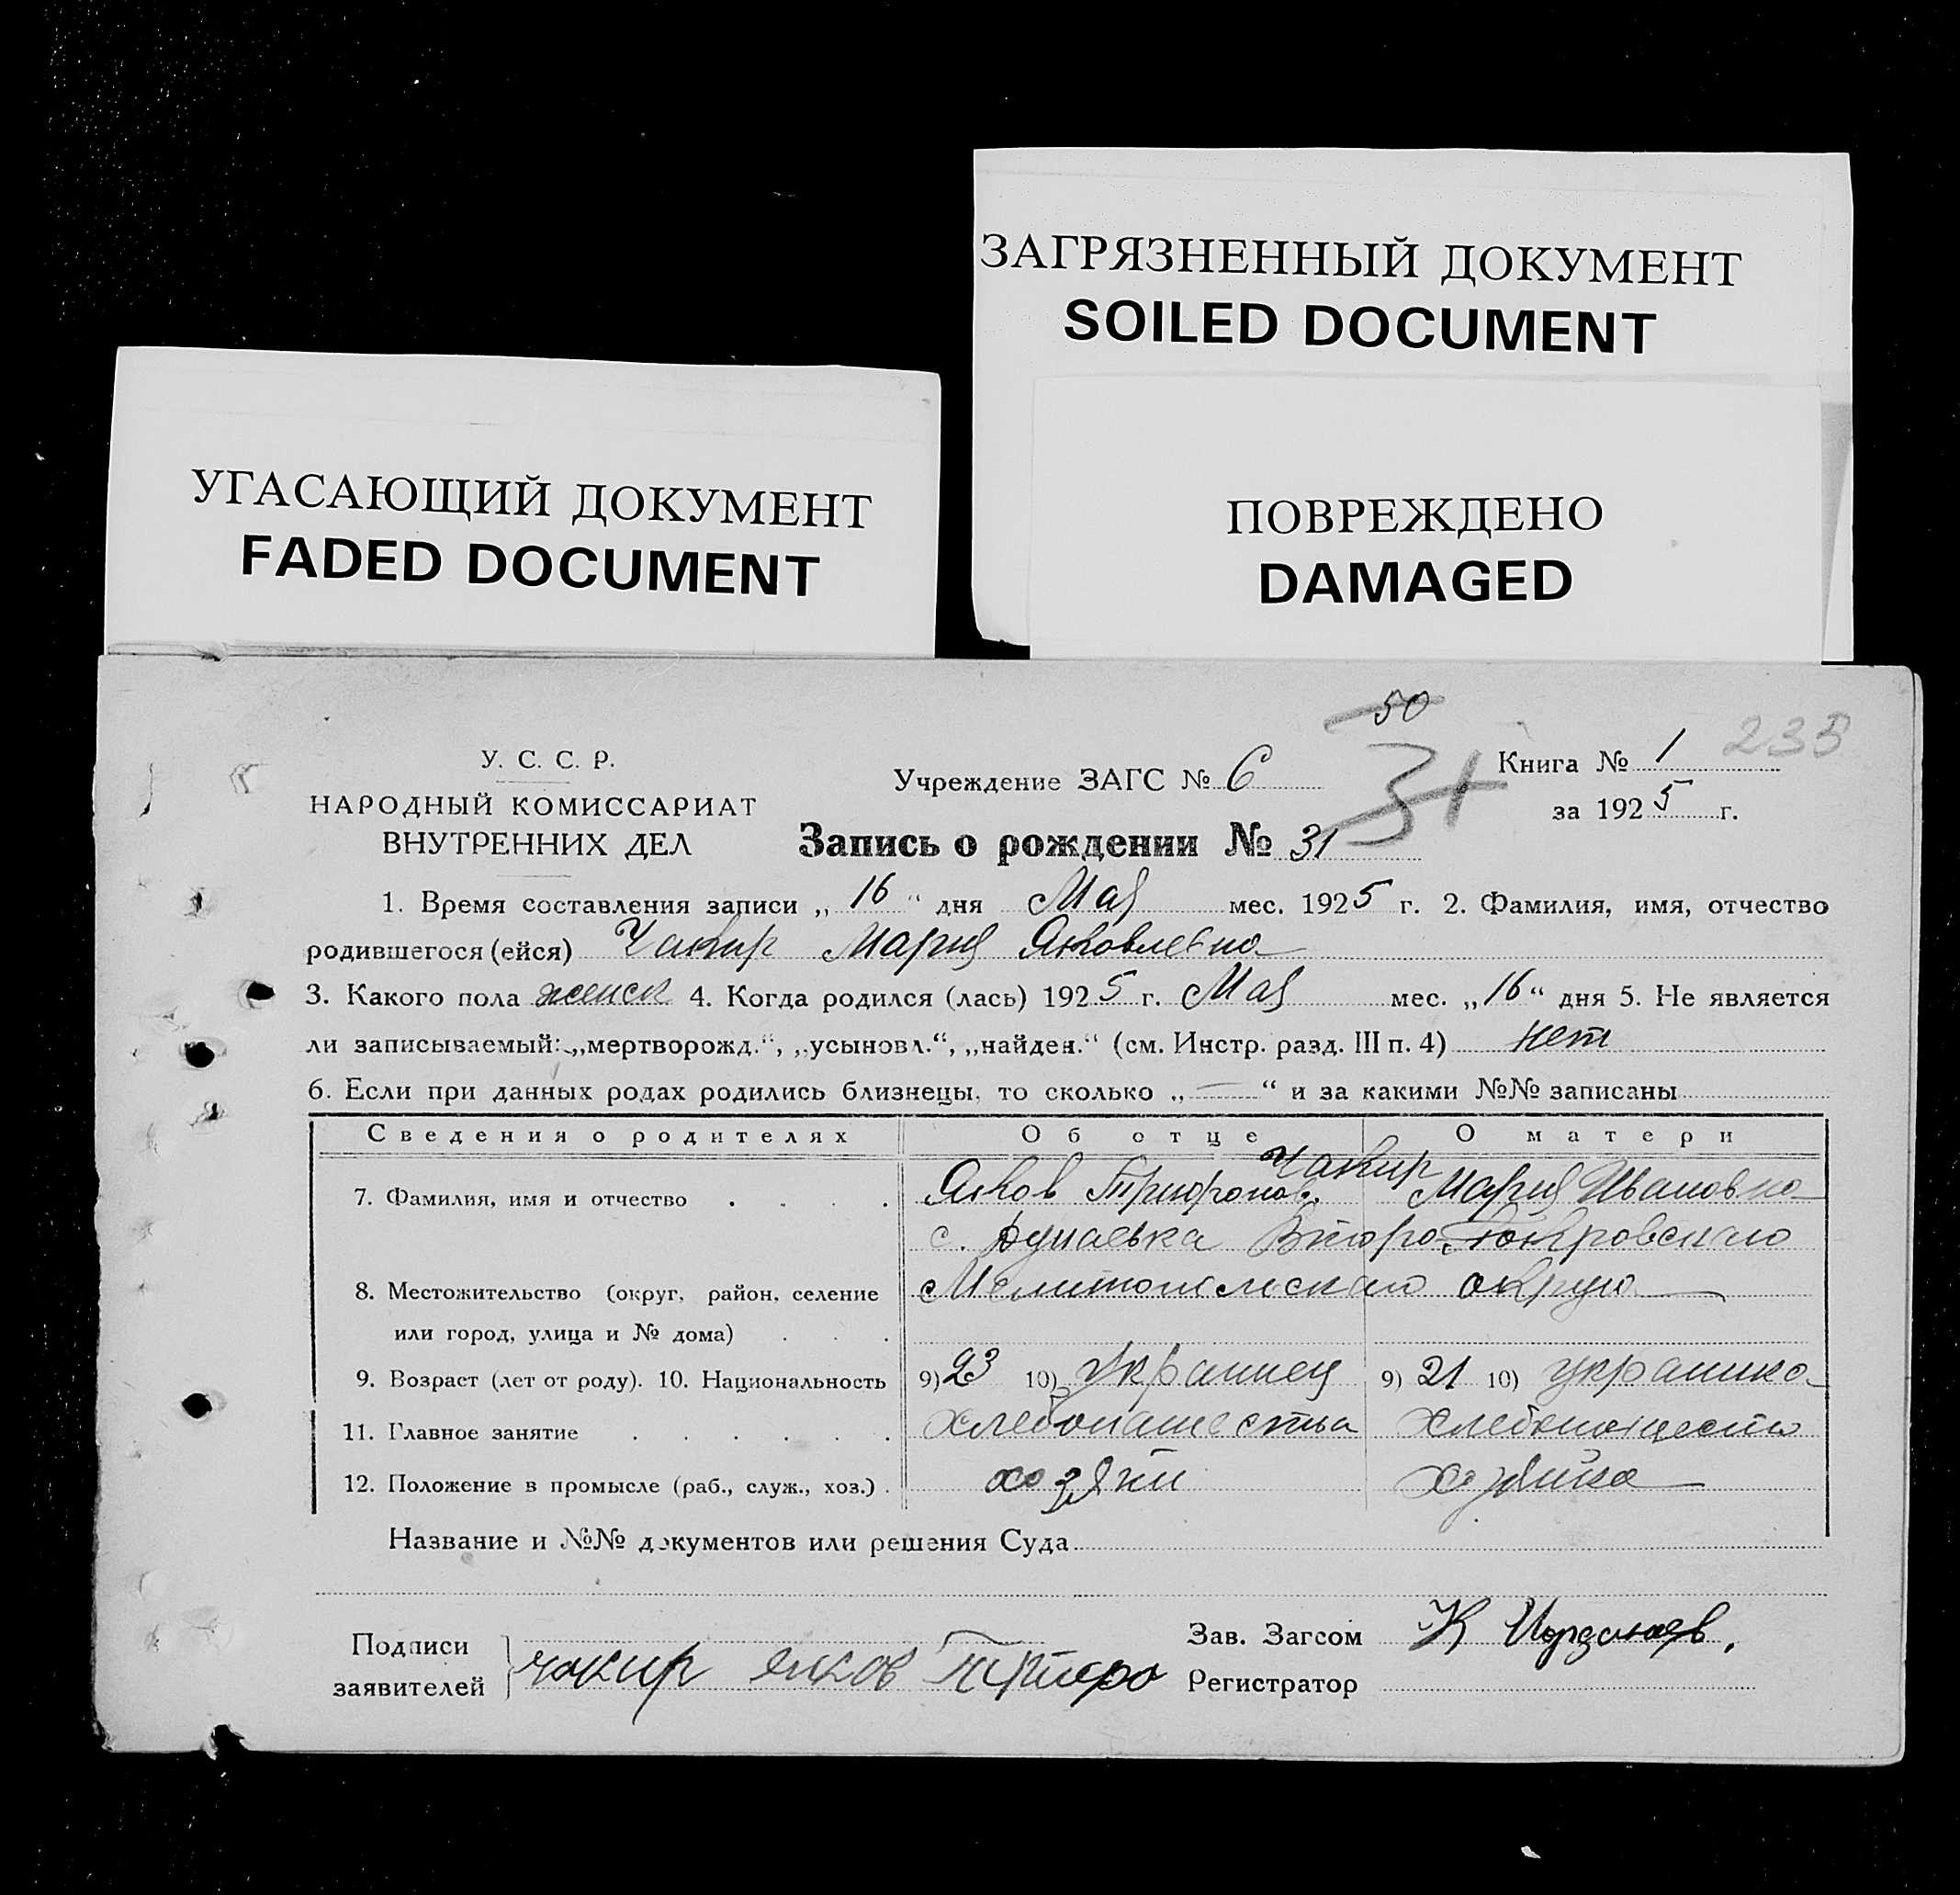 ЗАГРЯЗНЕННЫЙ ДОКУМЕНТ
SOILED DOCUMENT
УГАСАЮЩИЙ ДОКУМЕНТ
FADED DOCUMENT
ПОВРЕЖДЕНО
DAMAGED
50
У. С. С. Р.
НАРОДНЫЙ КОМИССАРИАТ
ВНУТРЕННИХ ДЕЛ
Учреждение ЗАГС № 6
31
Книга № 1 233
за 1925 г.
Запись о рождении № 31
1. Время составления записи „ 16 “ дня Мая мес. 1925 г. 2. Фамилия, имя, отчество
родившегося (ейся) Чакир Мария Яковлевна
3. Какого пола женск 4. Когда родился (лась) 1925 г. Мая мес. „16“ дня 5. Не является
ли записываемый: „мертворожд.“, „усыновл.“, „найден.“ (см. Инстр. разд. III п. 4) нет
6. Если при данных родах родились близнецы, то сколько „ — “ и за какими №№ записаны
Сведения о родителях Об отце О матери
Чакир
7. Фамилия, имя и отчество Яков Трифонов. Мария Ивановна
с. Дунаевка Второ-Покровского
8. Местожительство (округ, район, селение Мелитопольского округа
или город, улица и № дома)
9. Возраст (лет от роду). 10. Национальность 9) 23 10) Украинец 9) 21 10) украинка
11. Главное занятие Хлебопашества Хлебопашество
12. Положение в промысле (раб., служ., хоз.) хозяин хозяйка
Название и №№ документов или решения Суда
Подписи
заявителей чакир яков
Зав. Загсом К
Регистратор